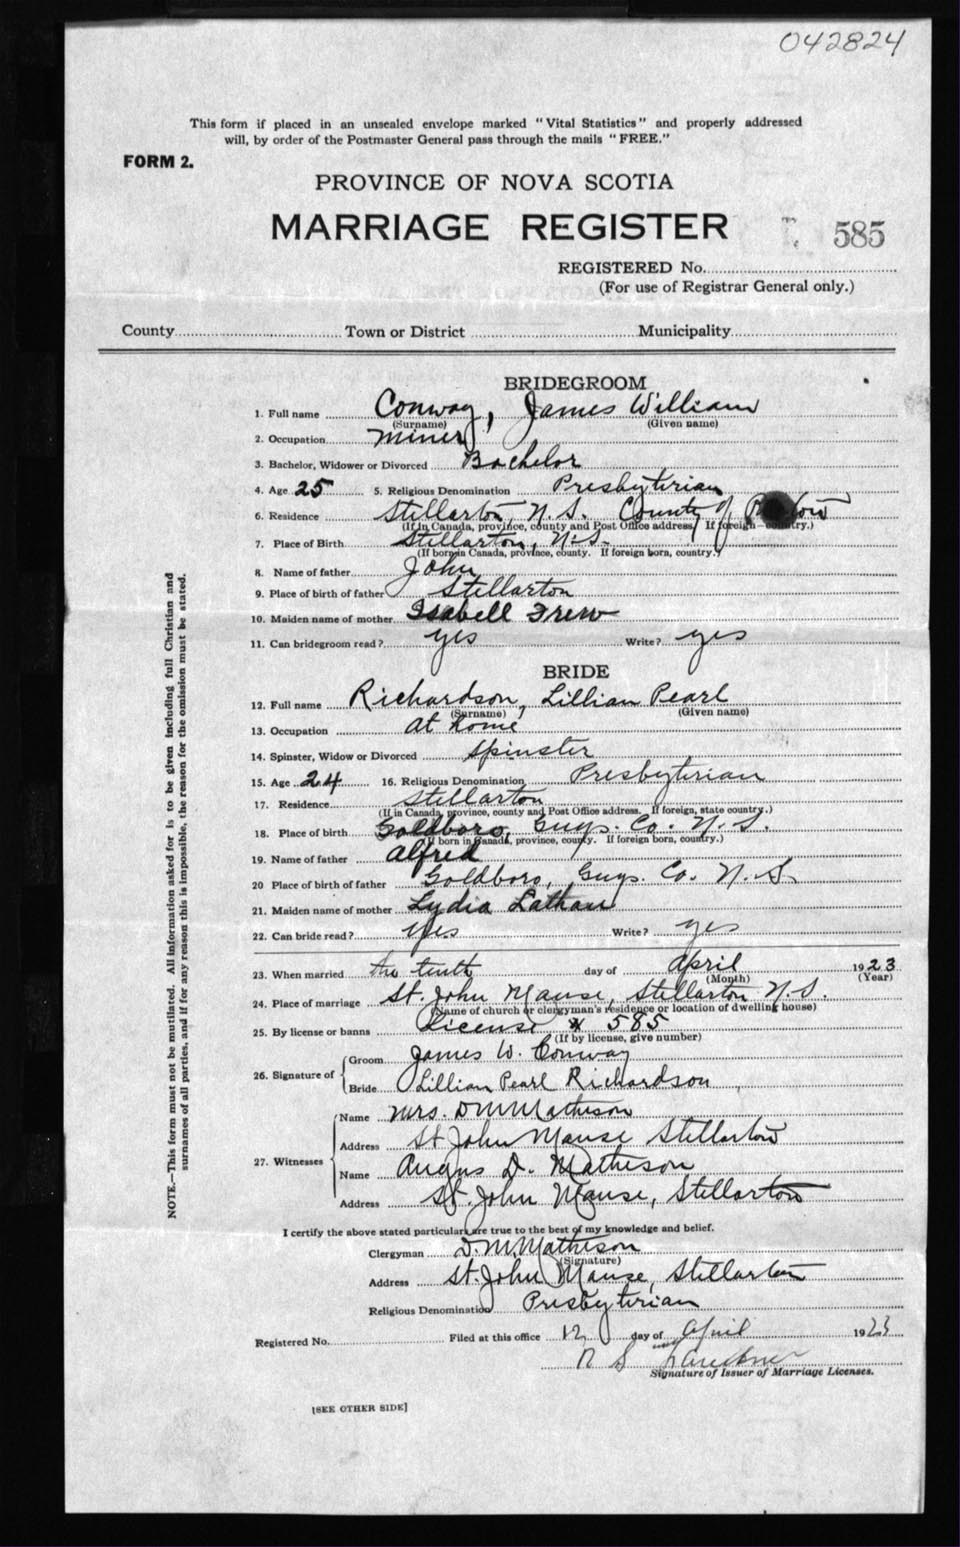 042824
This form if placed in an unsealed envelope marked "Vital Statistics" and properly addressed
will, by order of the Postmaster General pass through the mails "FREE."
FORM 2.
PROVINCE OF NOVA SCOTIA
MARRIAGE REGISTER
585
REGISTERED No.
(For use of Registrar General only.)
County Town or District Municipality
BRIDEGROOM
1. Full name Conway, James William
(Surname) (Given name)
2. Occupation miner
3. Bachelor, Widower or Divorced Bachelor
4. Age 25 5. Religious Denomination Presbyterian
6. Residence Stellarton, N.S. County of
(If in Canada, province, county and Post Office address. If foreign—country.)
7. Place of Birth Stellarton, N.S.
(If born in Canada, province, county. If foreign born, country.)
8. Name of father John
9. Place of birth of father Stellarton
10. Maiden name of mother Isabell Frew
11. Can bridegroom read? yes Write? yes
BRIDE
12. Full name Richardson, Lillian Pearl
(Surname) (Given name)
13. Occupation at home
14. Spinster, Widow or Divorced Spinster
15. Age 24 16. Religious Denomination Presbyterian
17. Residence Stellarton
(If in Canada, province, county and Post Office address. If foreign, state country.)
18. Place of birth Goldboro, Guys. Co. N.S.
(If born in Canada, province, county. If foreign born, country.)
19. Name of father Alfred
20 Place of birth of father Goldboro, Guys. Co. N.S.
21. Maiden name of mother Lydia Latham
22. Can bride read? yes Write? yes
23. When married the tenth day of April 1923
(Month) (Year)
24. Place of marriage St. John Manse, Stellarton N.S.
(Name of church or clergyman's residence or location of dwelling house)
25. By license or banns License # 585
(If by license, give number)
26. Signature of
Groom James W. Conway
Bride Lillian Pearl Richardson
27. Witnesses
Name Mrs. D M Matheson
Address St John Manse Stellarton
Name Angus D. Matheson
Address St. John Manse, Stellarton
I certify the above stated particulars are true to the best of my knowledge and belief.
Clergyman D. M. Matheson
(Signature)
Address St. John Manse, Stellarton
Religious Denomination Presbyterian
Registered No. Filed at this office 12 day of April 1923
Signature of Issuer of Marriage Licenses.
[SEE OTHER SIDE]
NOTE.—This form must not be mutilated. All information asked for is to be given including full Christian and
surnames of all parties, and if for any reason this is impossible, the reason for the omission must be stated.